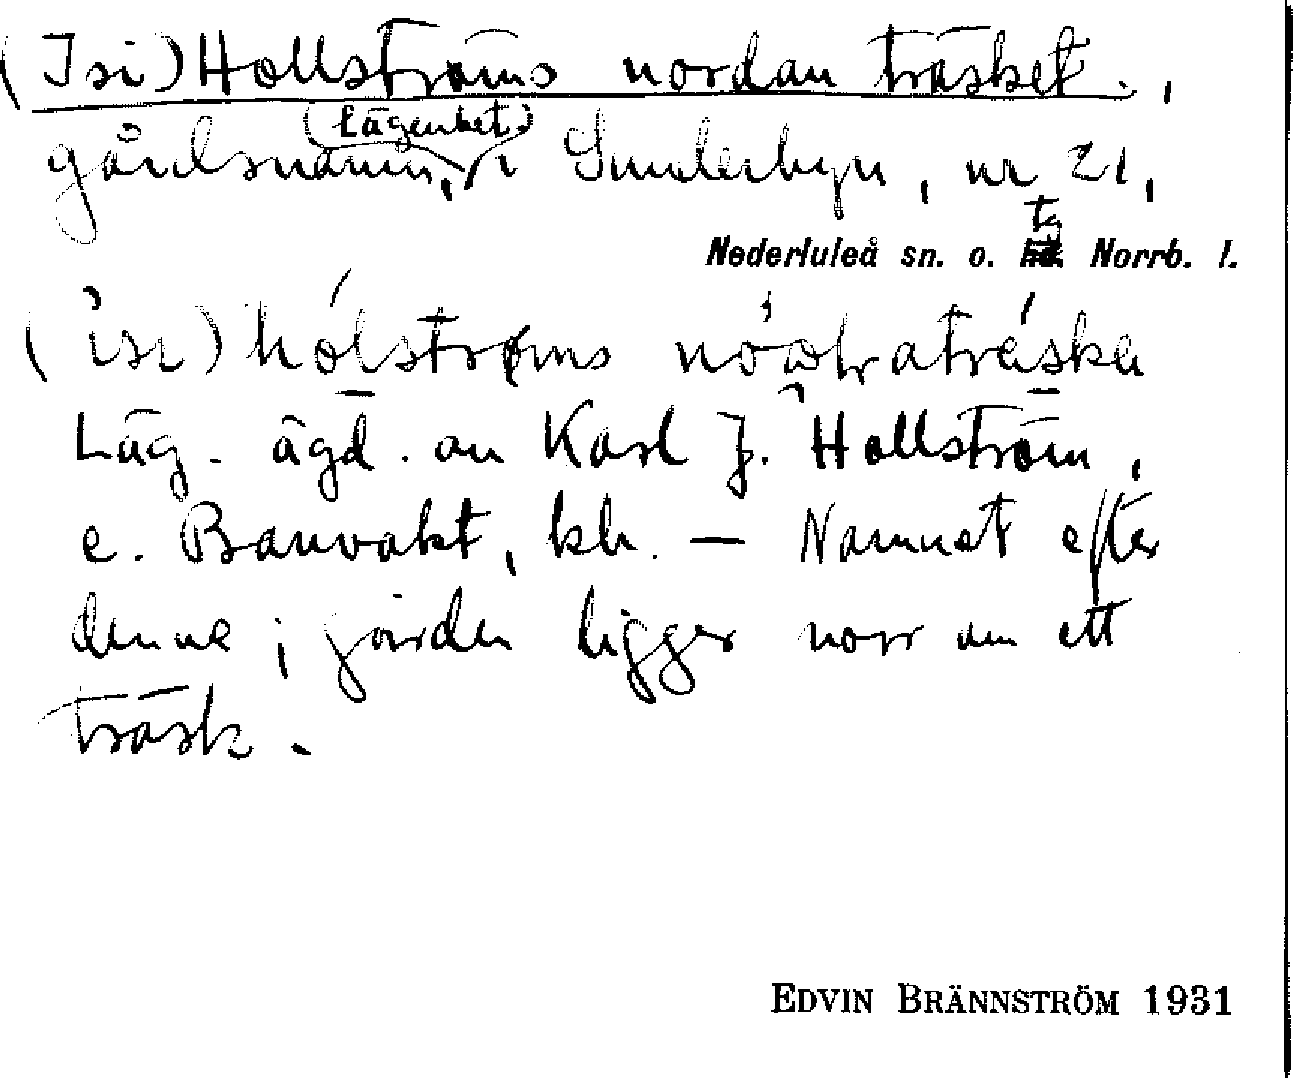 (Isi) Hollströms nordan träsket.,
(lägenhet)
gårdsnamn, i Sunderbyn, nr 21,
tg
Nederluleå sn. o. Norrb. l.
(isi) hólstrøms
Läg. ägd. av Karl J. Hollström,
e. Banvakt, bh. — Namnet efter
denne; gården ligger norr om ett
träsk.
EDVIN BRÄNNSTRÖM 1931